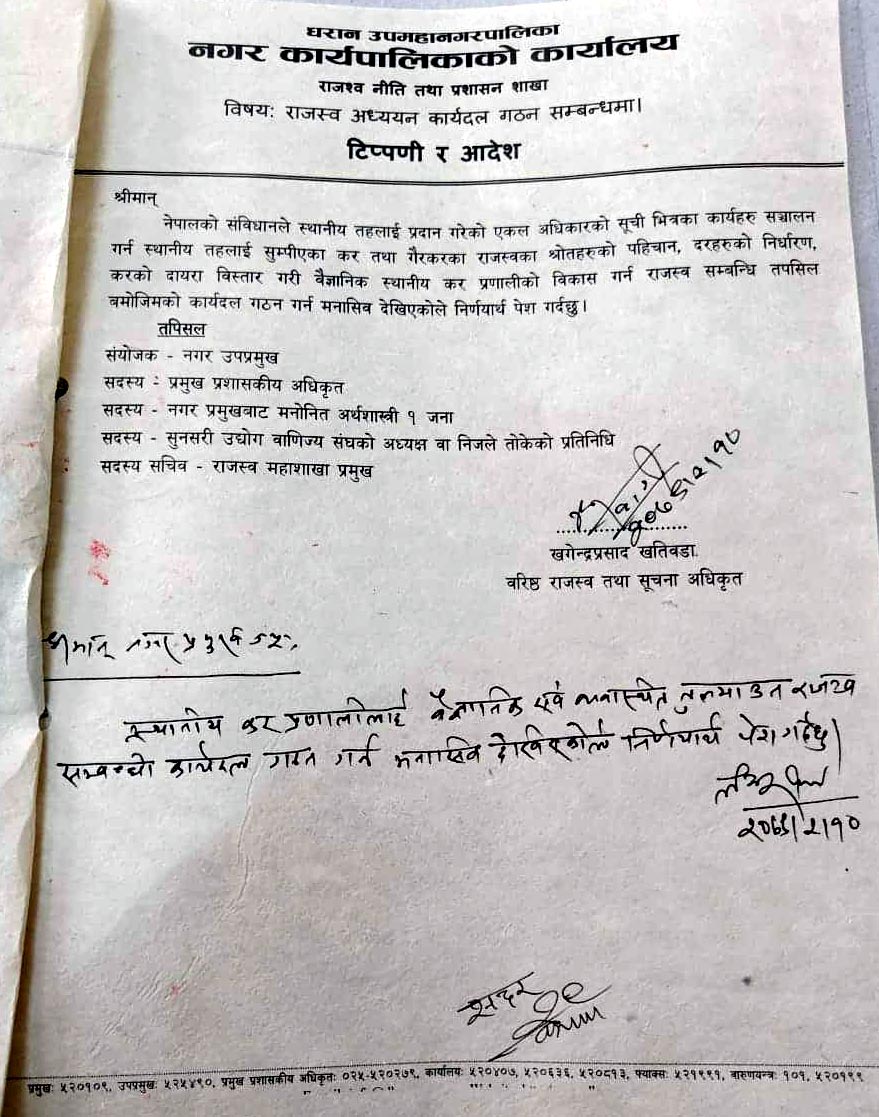 धरान उपमहानगरपालिका
नगर कार्यपालिकाको कार्यालय
राजश्व नीति तथा प्रशासन शाखा
विषय: राजस्व अध्ययन कार्यदल गठन सम्बन्धमा।
टिप्पणी र आदेश
श्रीमान्
नेपालको संविधानले स्थानीय तहलाई प्रदान गरेको एकल अधिकारको सूची भित्रका कार्यहरु सञ्चालन
गर्न स्थानीय तहलाई सुम्पीएका कर तथा गैरकरका राजस्वका श्रोतहरुको पहिचान, दरहरुको निर्धारण,
करको दायरा विस्तार गरी वैज्ञानिक स्थानीय कर प्रणालीको विकास गर्न राजस्व सम्बन्धि तपसिल
बमोजिमको कार्यदल गठन गर्न मनासिव देखिएकोले निर्णयार्थ पेश गर्दछु।
तपिसल
संयोजक - नगर उपप्रमुख
सदस्य - प्रमुख प्रशासकीय अधिकृत
सदस्य - नगर प्रमुखबाट मनोनित अर्थशास्त्री १ जना
सदस्य - सुनसरी उद्योग वाणिज्य संघको अध्यक्ष वा निजले तोकेको प्रतिनिधि
सदस्य सचिव - राजस्व महाशाखा प्रमुख
खगेन्द्रप्रसाद खतिवडा
वरिष्ठ राजस्व तथा सूचना अधिकृत
श्रीमान् नगर प्रमुख ज्यू,
स्थानीय कर प्रणालीलाई वैज्ञानिक एवं राजस्व
सम्बन्धी कार्यदल गठन गर्न मनासिव देखिएकोले निर्णयार्थ पेश गर्दछु।
सदर
प्रमुख: ५२०१०९, उपप्रमुख: ५२५४९०, प्रमुख प्रशासकीय अधिकृत: ०२५-५२०२७९, कार्यालय: ५२०४०७, ५२०६३६, ५२०८१३, फ्याक्स: ५२१९९१, वारुणयन्त्र: १०१, ५२०१९९